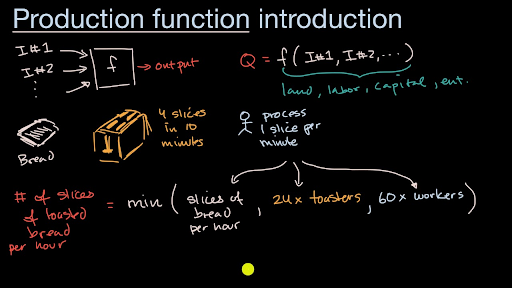 Production function introduction
I#1
I#2
⋮
f
→ output
Q = f( I#1, I#2, ... )
land, labor, capital, ent.
Bread
4 slices
in 10
minutes
process
1 slice per
minute
# of slices
of toasted
bread
per hour
= min (
slices of
bread
per hour
, 24 x toasters
, 60 x workers )